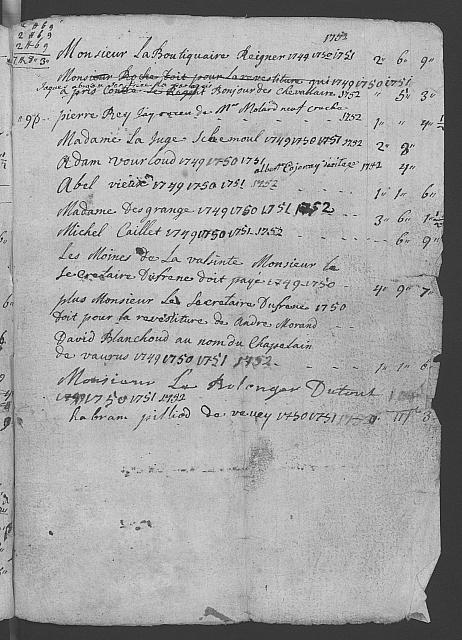 2 # 6 9
2 # 6 9
2 # 6 9
1753
Monsieur La Boutiquaire Reigner 1749 1750 1751 2" 6" 9"
Monsieur Rochat doit pour la revestiture qui 1749 1750 1751
Bonjour des Chevallaire 1752 " 5" 3"
pierre Rey Jay receu de Mr Molard neuf crache
1752 1" " 4" 1/2
Madame La Juge Schemoul 1749 1750 1751 1752 2" 9"
Adam Vourloud 1749 1750 1751 1752 4"
Abel vieux 1749 1750 1751 1752 1" 1" 6"
Madame Desgrange 1749 1750 1751 1752 3" 6" 1" 1/2
Michel Caillet 1749 1750 1751 1752 6" 9"
Les Moines de La valsinte Monsieur le
Secretaire Dufrene doit payé 1749 1750 4" 9" 7"
plus Monsieur Le Secretaire Dufrene 1750
doit pour la revestiture de Andre Morand
David Blanchoud au nom du Chastelain
de vaurus 1749 1750 1751 1752 1" 1" 6"
Monsieur Le Dutout
1749 1750 1751 1752
habram pilliod de vevey 1750 1751 11" 3"